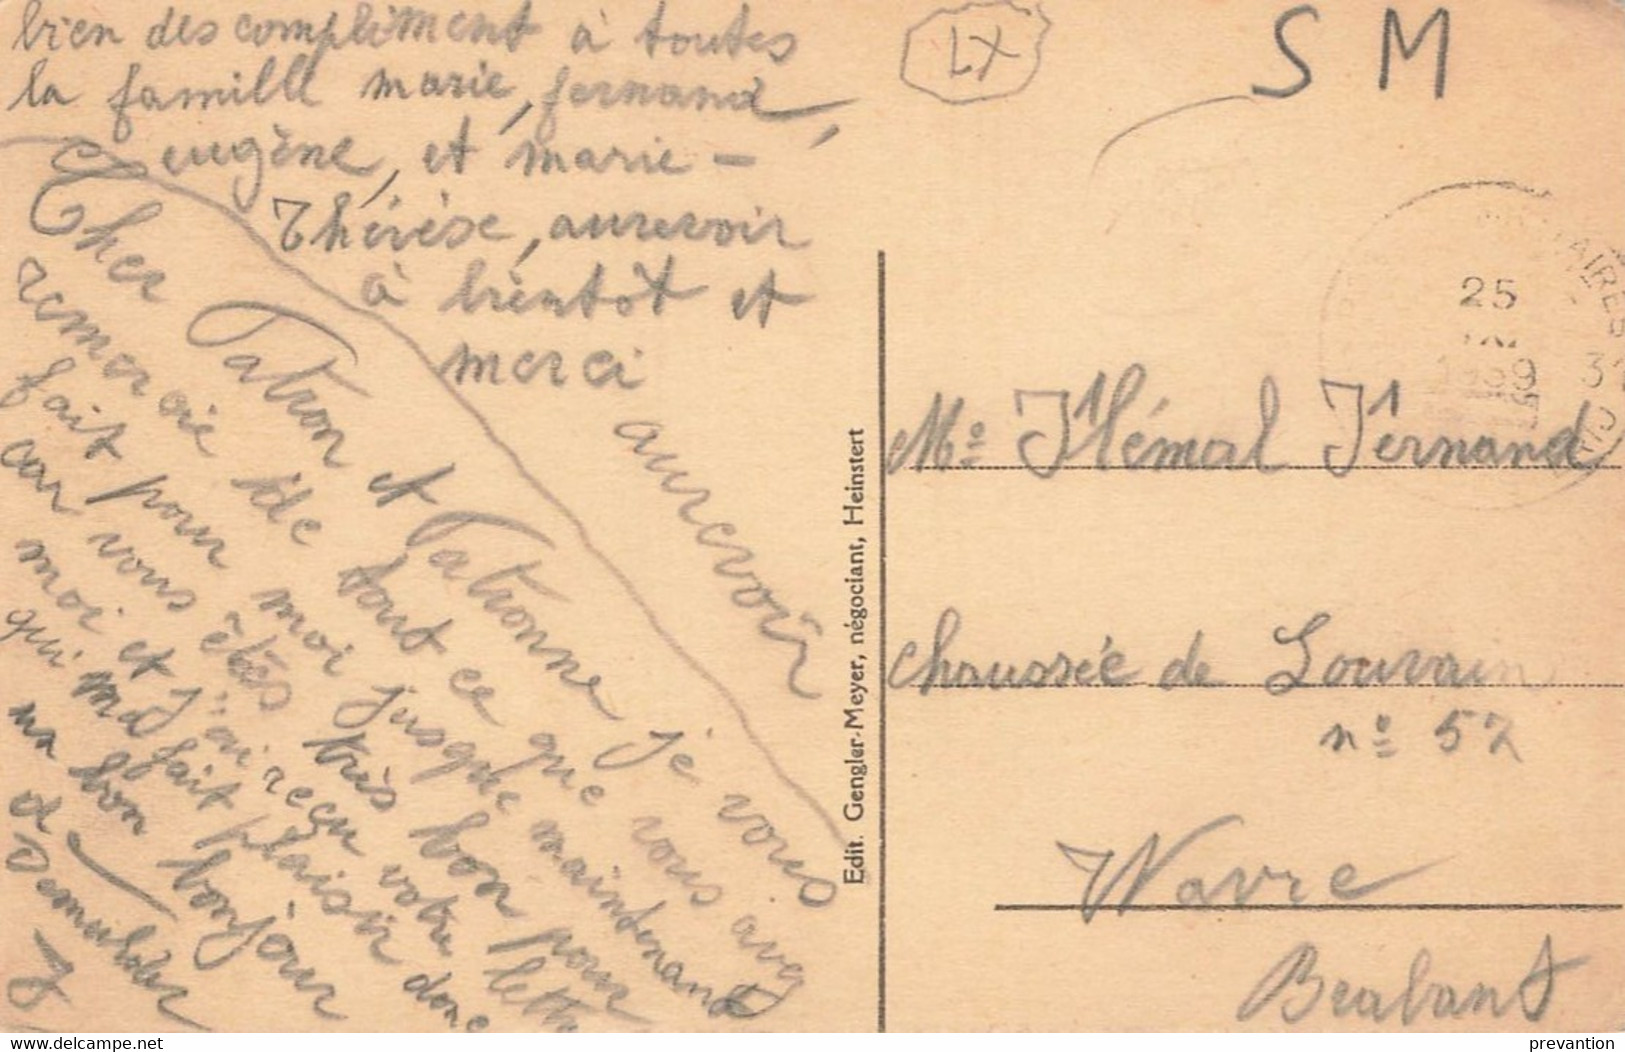 bien des compliment à toutes
la famille marie, fernand,
eugène, et marie-
Thérèse, aurevoir
à bientôt et
merci
aurevoir
Cher Patron et Patronne je vous
remercie de tout ce que vous avez
fait pour moi jusque maintenant
car vous êtes très bon pour
moi et j'ai reçu votre lettre
qui ma fait plaisir donc
un bon bonjour
de
J
Edit. Gengler-Meyer, négociant, Heinstert
LX
S M
25
1939
31
Mr Hémal Fernand
chaussée de Louvain
no 57
Wavre
Brabant
www.delcampe.net
prevantion